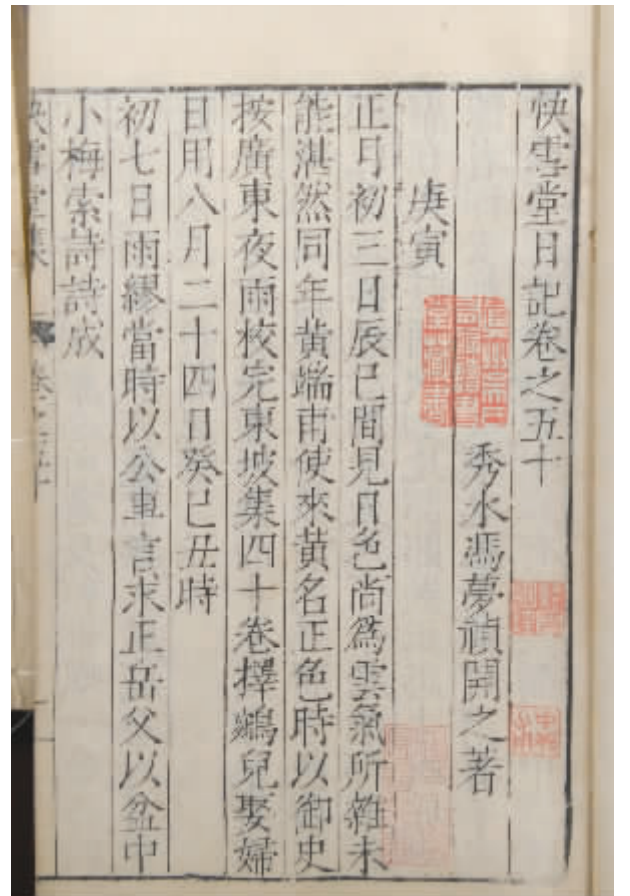 快雪堂日記卷之五十
秀水馮夢禎開之著
庚寅
正月初三日辰巳間見日色尚爲雲氣所雜未
能湛然同年黃端甫使來黃名正色時以御史
按廣東夜雨校完東坡集四十卷擇鵷兒娶婦
日用八月二十四日癸巳丑時
初七日雨繆當時以公車言求正岳父以盆中
小梅索詩詩成
快雪堂集
卷之五十
一